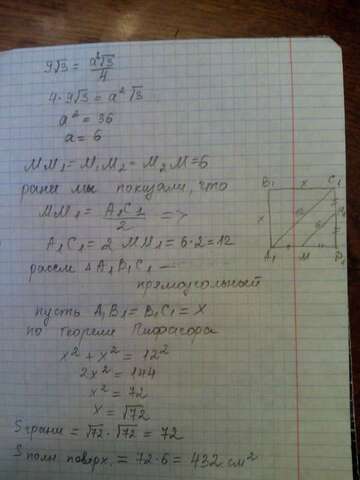 9√3 = a²√3/4
4·9√3 = a²√3
a² = 36
a = 6
MM₁ = M₁M₂ = M₂M = 6
ранее мы показали, что
MM₁ = A₁C₁/2 =>
A₁C₁ = 2 MM₁ = 6·2 = 12
расем ΔA₁B₁C₁ —
прямоугольный
пусть A₁B₁ = B₁C₁ = x
по теореме Пифагора
x² + x² = 12²
2x² = 144
x² = 72
x = √72
S грани = √72·√72 = 72
S полн. поверх. = 72·6 = 432 см²
B₁ x C₁
x
A₁ M D₁